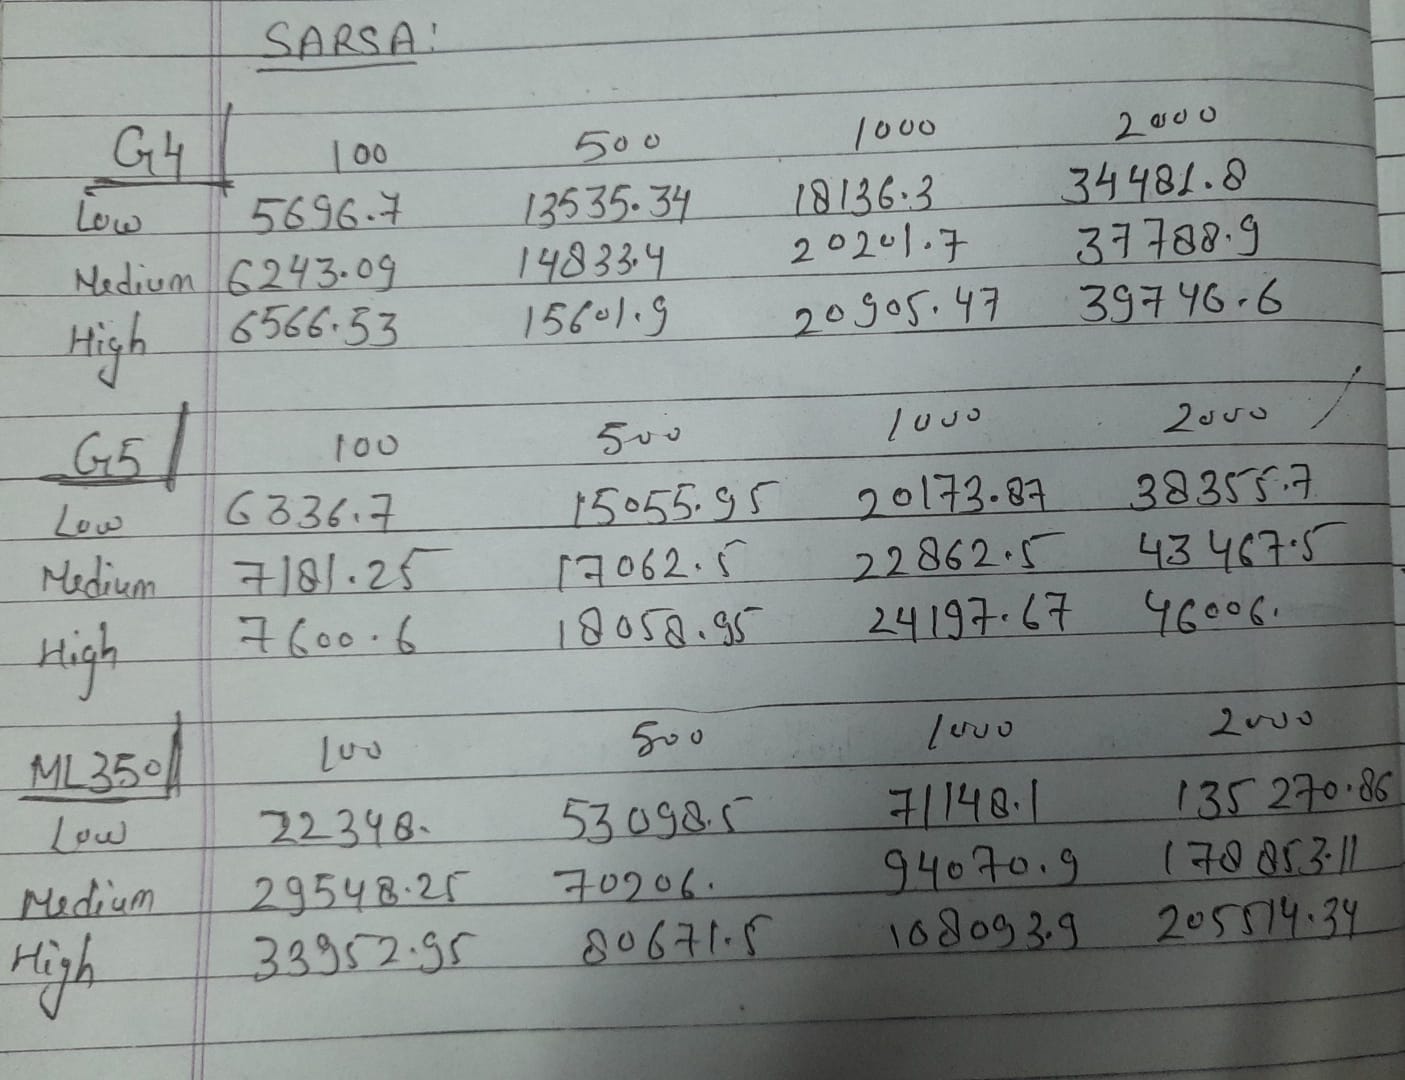 SARSA:
G4 100 500 1000 2000
Low 5696.7 13535.34 18136.3 34481.8
Medium 6243.09 14833.4 20201.7 37788.9
High 6566.53 15601.9 20905.47 39746.6
G5 100 500 1000 2000
Low 6336.7 15055.95 20173.87 38355.7
Medium 7181.25 17062.5 22862.5 43467.5
High 7600.6 18058.95 24197.67 46006.
ML350 100 500 1000 2000
Low 22348. 53098.5 71148.1 135270.86
Medium 29548.25 70206. 94070.9 178853.11
High 33952.95 80671.5 108093.9 205514.34